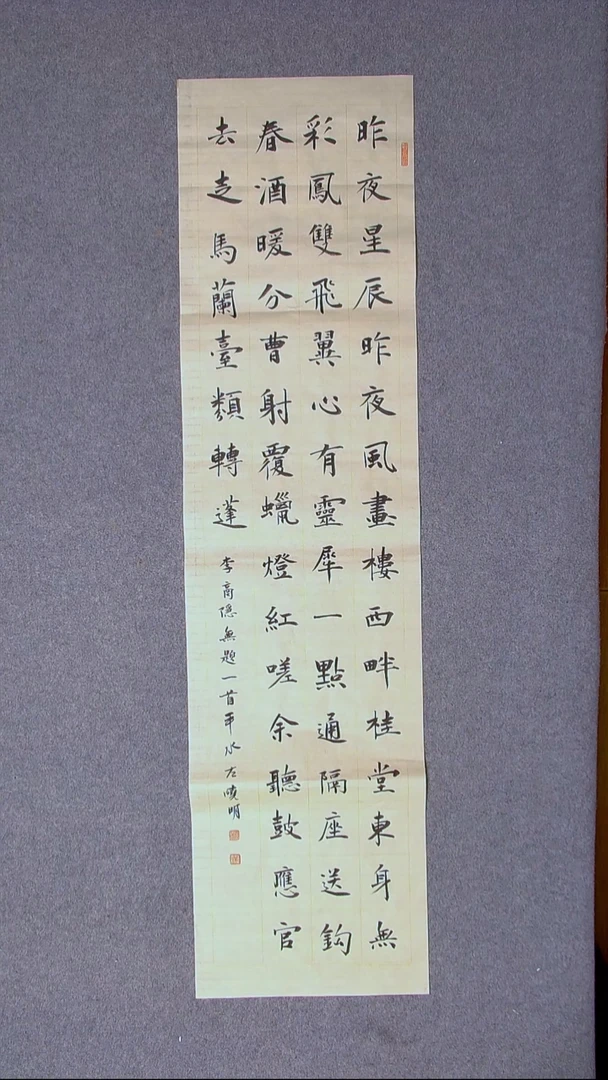 昨夜星辰昨夜風畫樓西畔桂堂東身無
彩鳳雙飛翼心有靈犀一點通隔座送鈎
春酒暖分曹射覆蠟燈紅嗟余聽鼓應官
去走馬蘭臺類轉蓬
李商隐無題一首平水左曉明